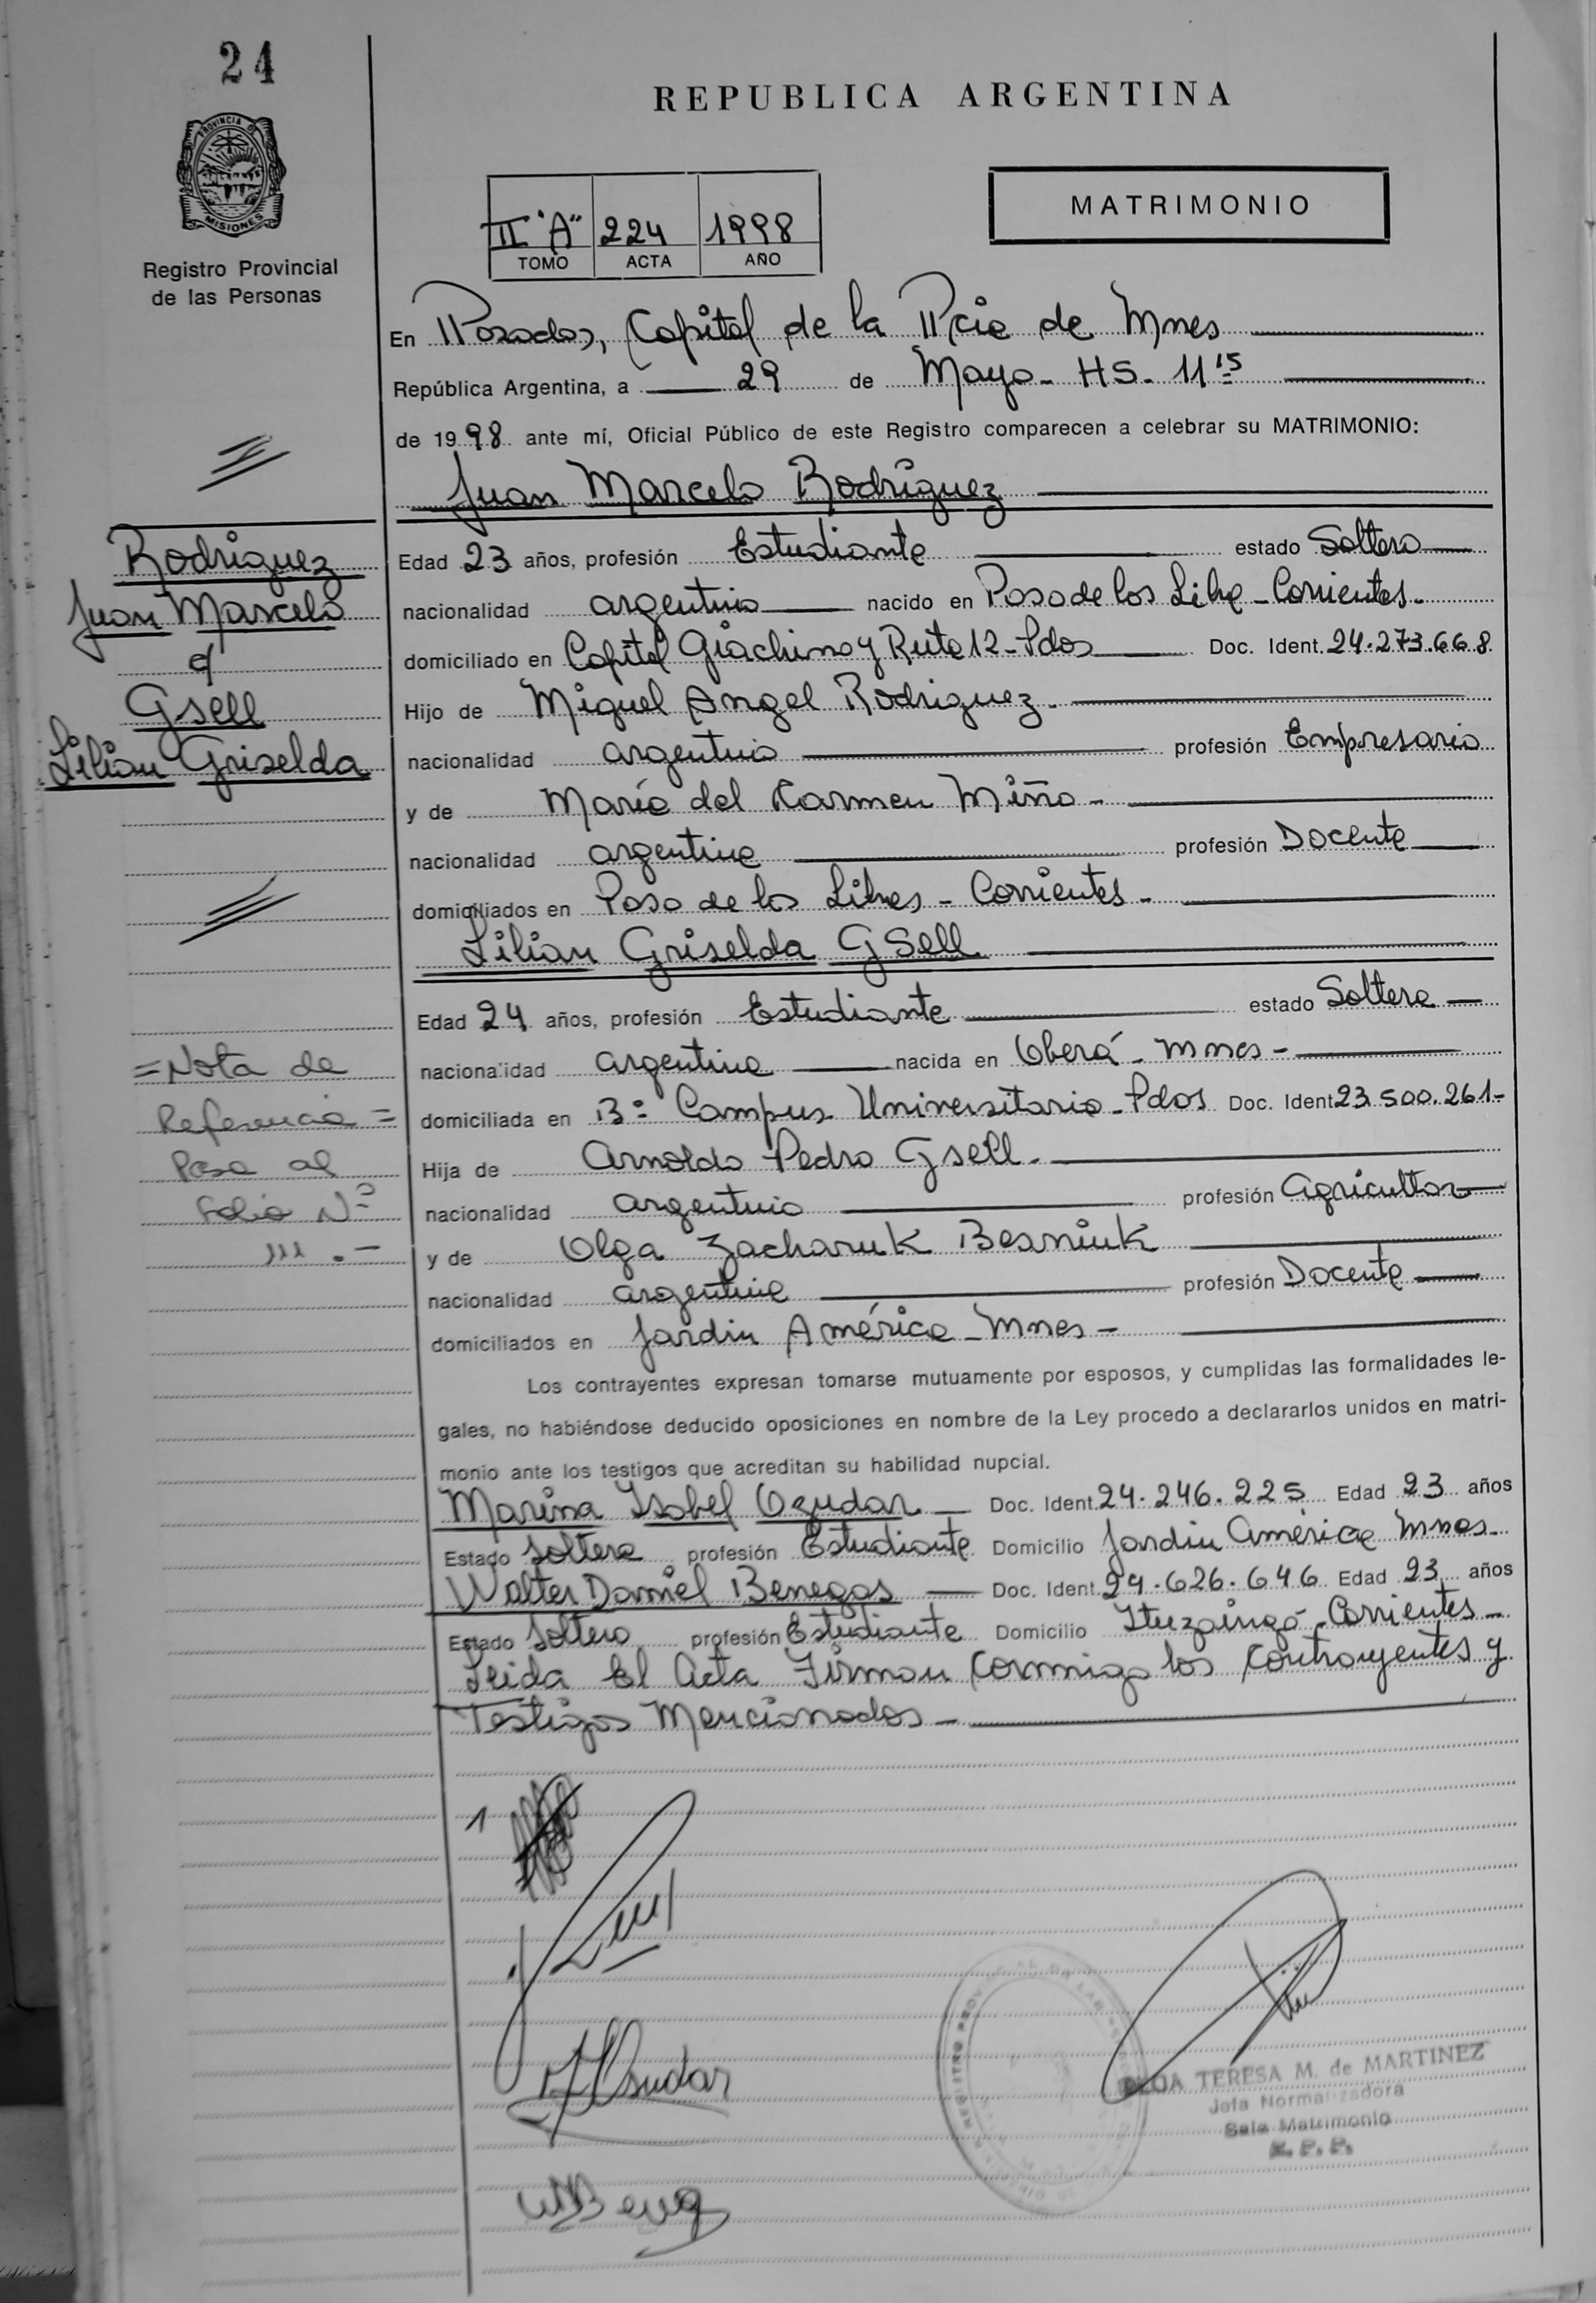 24
PROVINCIA DE
MISIONES
Registro Provincial
de las Personas
REPUBLICA ARGENTINA
MATRIMONIO
II "A" 224 1998
TOMO ACTA AÑO
En Posadas, Capital de la Pcia de Mnes
República Argentina, a 29 de Mayo - HS - 11 15
de 1998 ante mí, Oficial Público de este Registro comparecen a celebrar su MATRIMONIO:
Juan Marcelo Rodriguez
Edad 23 años, profesión Estudiante estado Soltero
nacionalidad argentino nacido en Paso de los Libres - Corrientes -
domiciliado en Capital Giachino y Ruta 12 - Pdas Doc. Ident. 24.273.668
Hijo de Miguel Angel Rodriguez -
nacionalidad argentino profesión Empresario
y de María del Carmen Miño -
nacionalidad argentina profesión Docente
domiciliados en Paso de los Libres - Corrientes -
Lilian Griselda GSell
Edad 24 años, profesión Estudiante estado Soltera
nacionalidad argentina nacida en Oberá - Mnes -
domiciliada en B= Campus Universitario - Pdas Doc. Ident 23.500.261-
Hija de Arnoldo Pedro Gsell -
nacionalidad argentino profesión Agricultor
y de Olga Zacharuk Besniuk
nacionalidad argentina profesión Docente
domiciliados en Jardin América - Mnes -
Los contrayentes expresan tomarse mutuamente por esposos, y cumplidas las formalidades le-
gales, no habiéndose deducido oposiciones en nombre de la Ley procedo a declararlos unidos en matri-
monio ante los testigos que acreditan su habilidad nupcial.
Marina Isabel Ozudar Doc. Ident. 24.246.225 Edad 23 años
Estado Soltera profesión Estudiante Domicilio Jardin América Mnes -
Walter Daniel Benegas Doc. Ident. 24.626.646 Edad 23 años
Estado Soltero profesión Estudiante Domicilio Ituzaingó - Corrientes -
Leida El Acta Firman Conmigo los Contrayentes y
Testigos Mencionados -
Rodriguez
Juan Marcelo
c/
Gsell
Lilian Griselda
= Nota de
Referencia =
Pasa al
Folio Nº
111 . -
1
TERESA M. de MARTINEZ
Jefa Normalizadora
Sala Matrimonio
R. P. P.